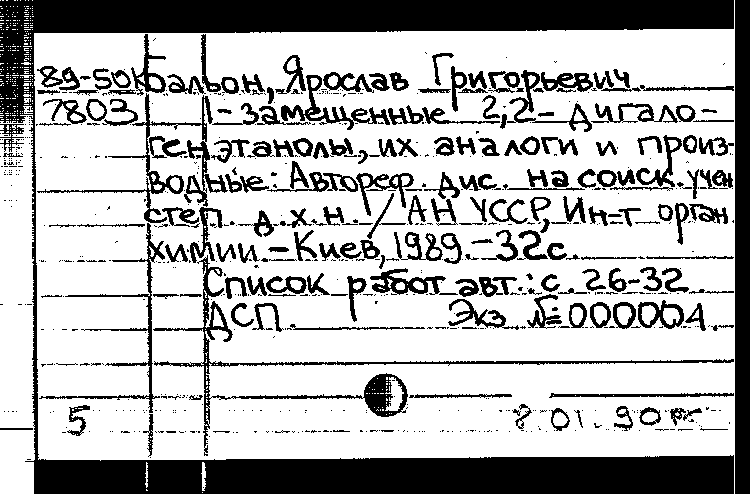 89-50к Бальон, Ярослав Григорьевич.
7803 1-Замещенные 2,2-дигало-
генэтанолы, их аналоги и произ-
водные: Автореф. дис. на соиск. учен
степ. д.х.н. / АН УССР, Ин-т орган.
химии. - Киев, 1989. - 32с.
Список работ авт.: с. 26-32.
ДСП. Экз №000004.
5 8.01.90